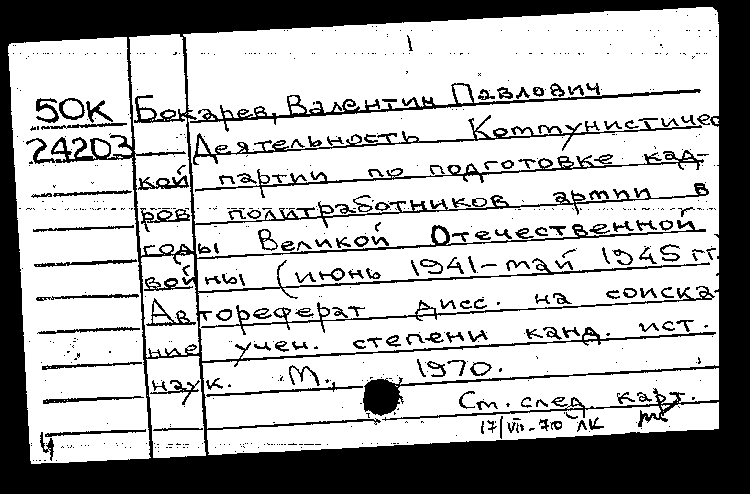 1
50К Бокарев, Валентин Павлович
24203 Деятельность Коммунистичес
кой партии по подготовке кад-
ров политработников армии в
годы Великой Отечественной
войны (июнь 1941-май 1945 гг.
Автореферат дисс. на соиска-
ние учен. степени канд. ист.
наук. М., 1970.
См. след. карт.
17/VII-70 ЛК
ч